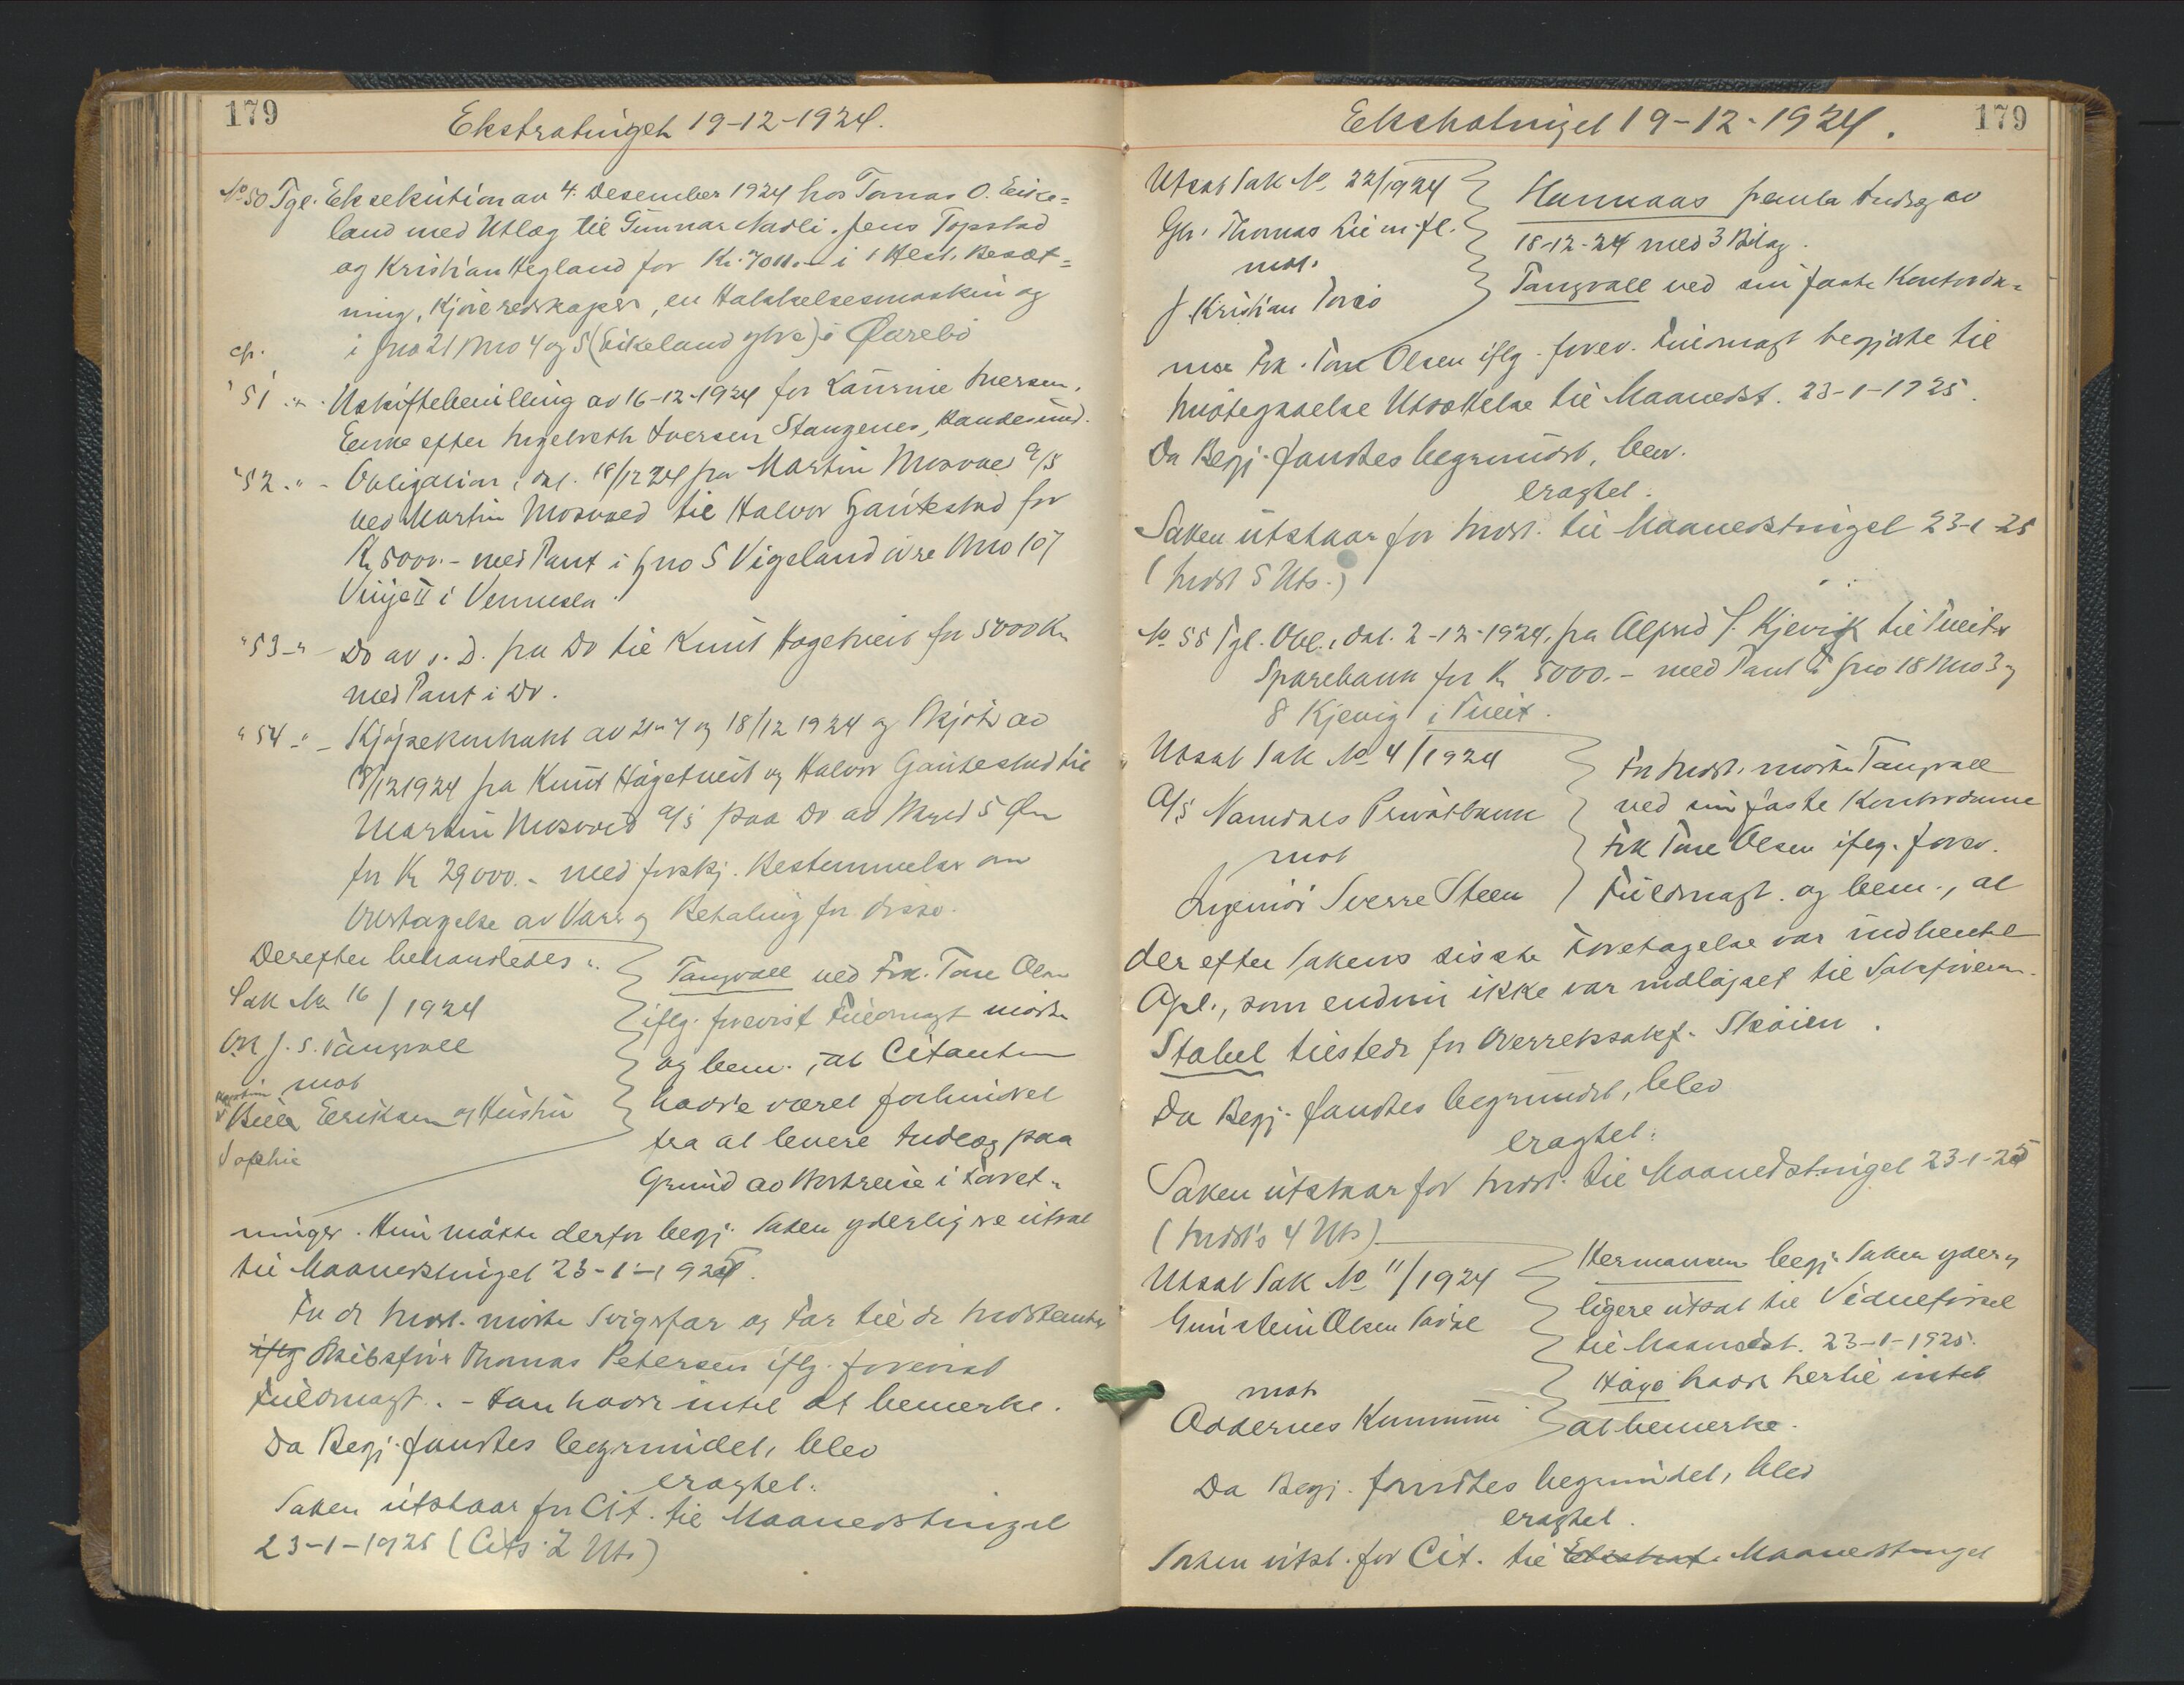 179
Ekstratinget 19-12-1924.
No 50 Tgl. Eksekution av 4. Desember 1924 hos Tomas O. Eike=
land med Utlæg til Gunnar Nadli. Jens Topstad
og Kristian Hegland for Kr. i 1 Hest, Besæt=
ning, Kjøreredskaper, en Hakkelsesmaskin og
i Gno 21 Bno 4 og 5 (Eikeland ) i Øvrebø
"51 " Uskiftebevilling av 16-12-1924 for Laurine Iversen,
Enke efter Iversen Stangenes, Randesund.
"52 " - Obligation, dat. 18/12 24 fra Martin Mosvold A/S
ved Martin Mosvold til Halvor Gautestad for
Kr. 5000.- med Pant i Gno 5 Vigeland øvre Bno 107
II i Vennesla.
"53 " Do av s. D. fra Do til Knut Hagetveit for 5000 Kr
med Pant i Do.
"54 " - Kjøpekontrakt av 21-7 og 18/12 1924 og Skjøte av
18/12 1924 fra Knut Hagetveit og Halvor Gautestad til
Martin Mosvold A/S paa Do av 5 Øre
for Kr 29000.- med forskj. Bestemmelser om
Overtagelse av Varer og Betaling for disse.
Derefter behandledes:
Sak No 16/1924
O.R. J. S. Tangvall
mot
Eeriksen og Hustru
Sophie
Tangvall ved Frk. Tone Olsen
iflg. forevist Fuldmagt møtte
og bem., at Citanten
hadde været forhindret
fra at levere Indlæg paa
Grund av Bortreise i Forret-
ninger. Hun maatte derfor begj. Saken yderligere utsat
til Maanedstinget 23-1-1925.
For de Indst. møtte Svigerfar og Far til de Indstevnte
iflg Skibsfører Thomas Petersen iflg. forevist
Fuldmagt. - Han hadde intet at bemerke.
Da Begj. fandtes begrundet, blev
eragtet:
Saken utstaar for Cit. til Maanedstinget
23-1-1925 (Cits 2 Uts)
Ekstratinget 19-12-1924.
179
Utsat Sak No 22/1924
Gbr. Thomas Lie m. fl.
mot
J. Kristian
Hannaas fremla Indlæg av
18-12-24 med 3 Bilag.
Tangvall ved sin faste Kontorda-
me Frk. Tone Olsen iflg. forev. Fuldmagt begjærte til
Imøtegaaelse Utsættelse til Maanedst. 23-1-1925.
Da Begj. fandtes begrundet, blev
eragtet:
Saken utstaar for Indst. til Maanedstinget 23-1-25
(Indst 5 Uts.)
No 55 Tgl. Obl., dat. 2-12-1924, fra Alfred S. Kjevik til Tveit
Sparebank for Kr 5000.- med Pant i Gno 18 Bno 3 og
8 Kjevig i Tveit.
Utsat Sak No 4/1924
A/S Namdals Privatbank
mot
Ingeniør Sverre Steen
For Indst. møtte Tangvall
ved sin faste Kontordame
Frk Tone Olsen iflg. forev.
Fuldmagt og bem., at
der efter Sakens sisste Foretagelse var indhentet
Opl., som endnu ikke var indløpet til Sakfører
Stabel tilstede for Overretssakf. Skøien.
Da Begj. fandtes begrundet, blev
eragtet:
Saken utstaar for Indst. til Maanedstinget 23-1-25
(Indst's 4 Uts)
Utsat Sak No 11/1924
Gunstein Olsen
mot
Oddernes Kommune
Hermansen begj. Saken yder-
ligere utsat til Vidneførsel
til Maanedst. 23-1-1925.
Høye hadde hertil intet
at bemerke.
Da Begj. fandtes begrundet, blev
eragtet.
Saken utst. for Cit. til Ekstrat. Maanedstinget